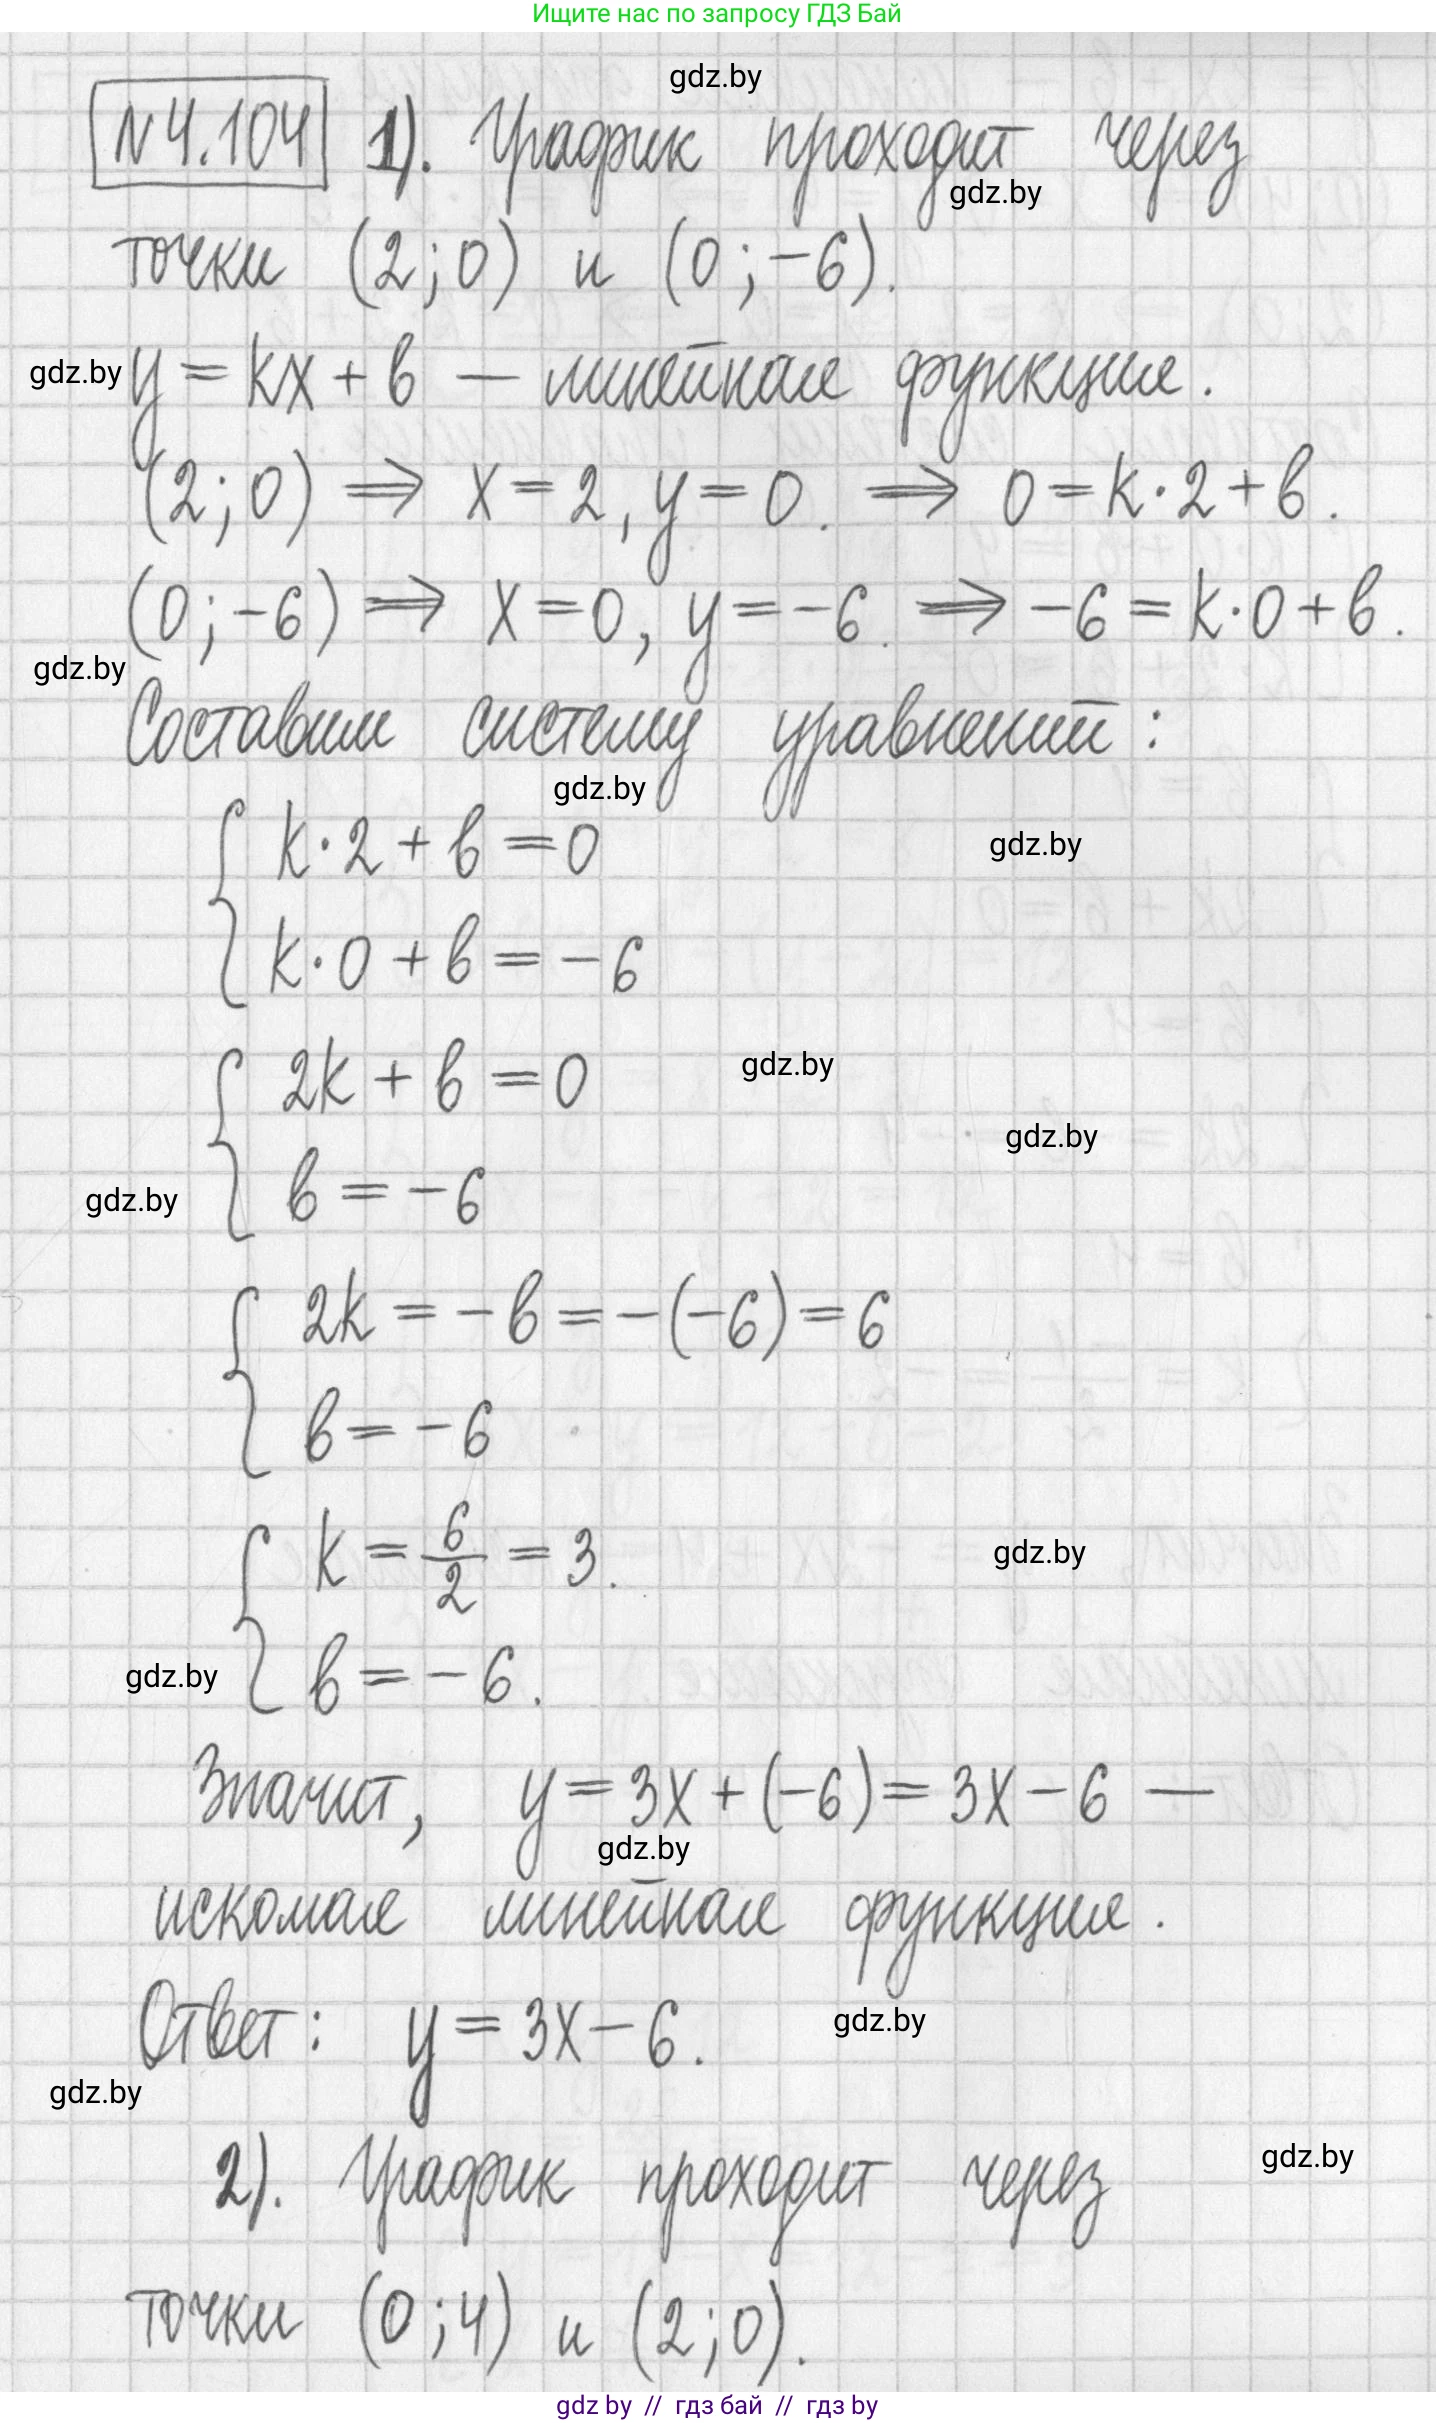 Ищите нас по запросу ГДЗ Бай
gdz.by
№4.104 1). График проходит через
gdz.by
точки (2;0) и (0;-6).
gdz.by
y = kx + b — линейная функция.
(2;0) ⇒ x = 2, y = 0. ⇒ 0 = k·2 + b.
(0;-6) ⇒ x = 0, y = -6. ⇒ -6 = k·0 + b.
gdz.by
Составим систему уравнений:
gdz.by
{ k·2 + b = 0
gdz.by
k·0 + b = -6
{ 2k + b = 0
gdz.by
gdz.by
b = -6
gdz.by
{ 2k = -b = -(-6) = 6
b = -6
{ k = 6/2 = 3.
gdz.by
b = -6.
gdz.by
Значит, y = 3x + (-6) = 3x - 6 —
gdz.by
искомая линейная функция.
Ответ: y = 3x - 6.
gdz.by
gdz.by
2). График проходит через
gdz.by
точки (0;4) и (2;0).
gdz by // гдз бай // гдз by